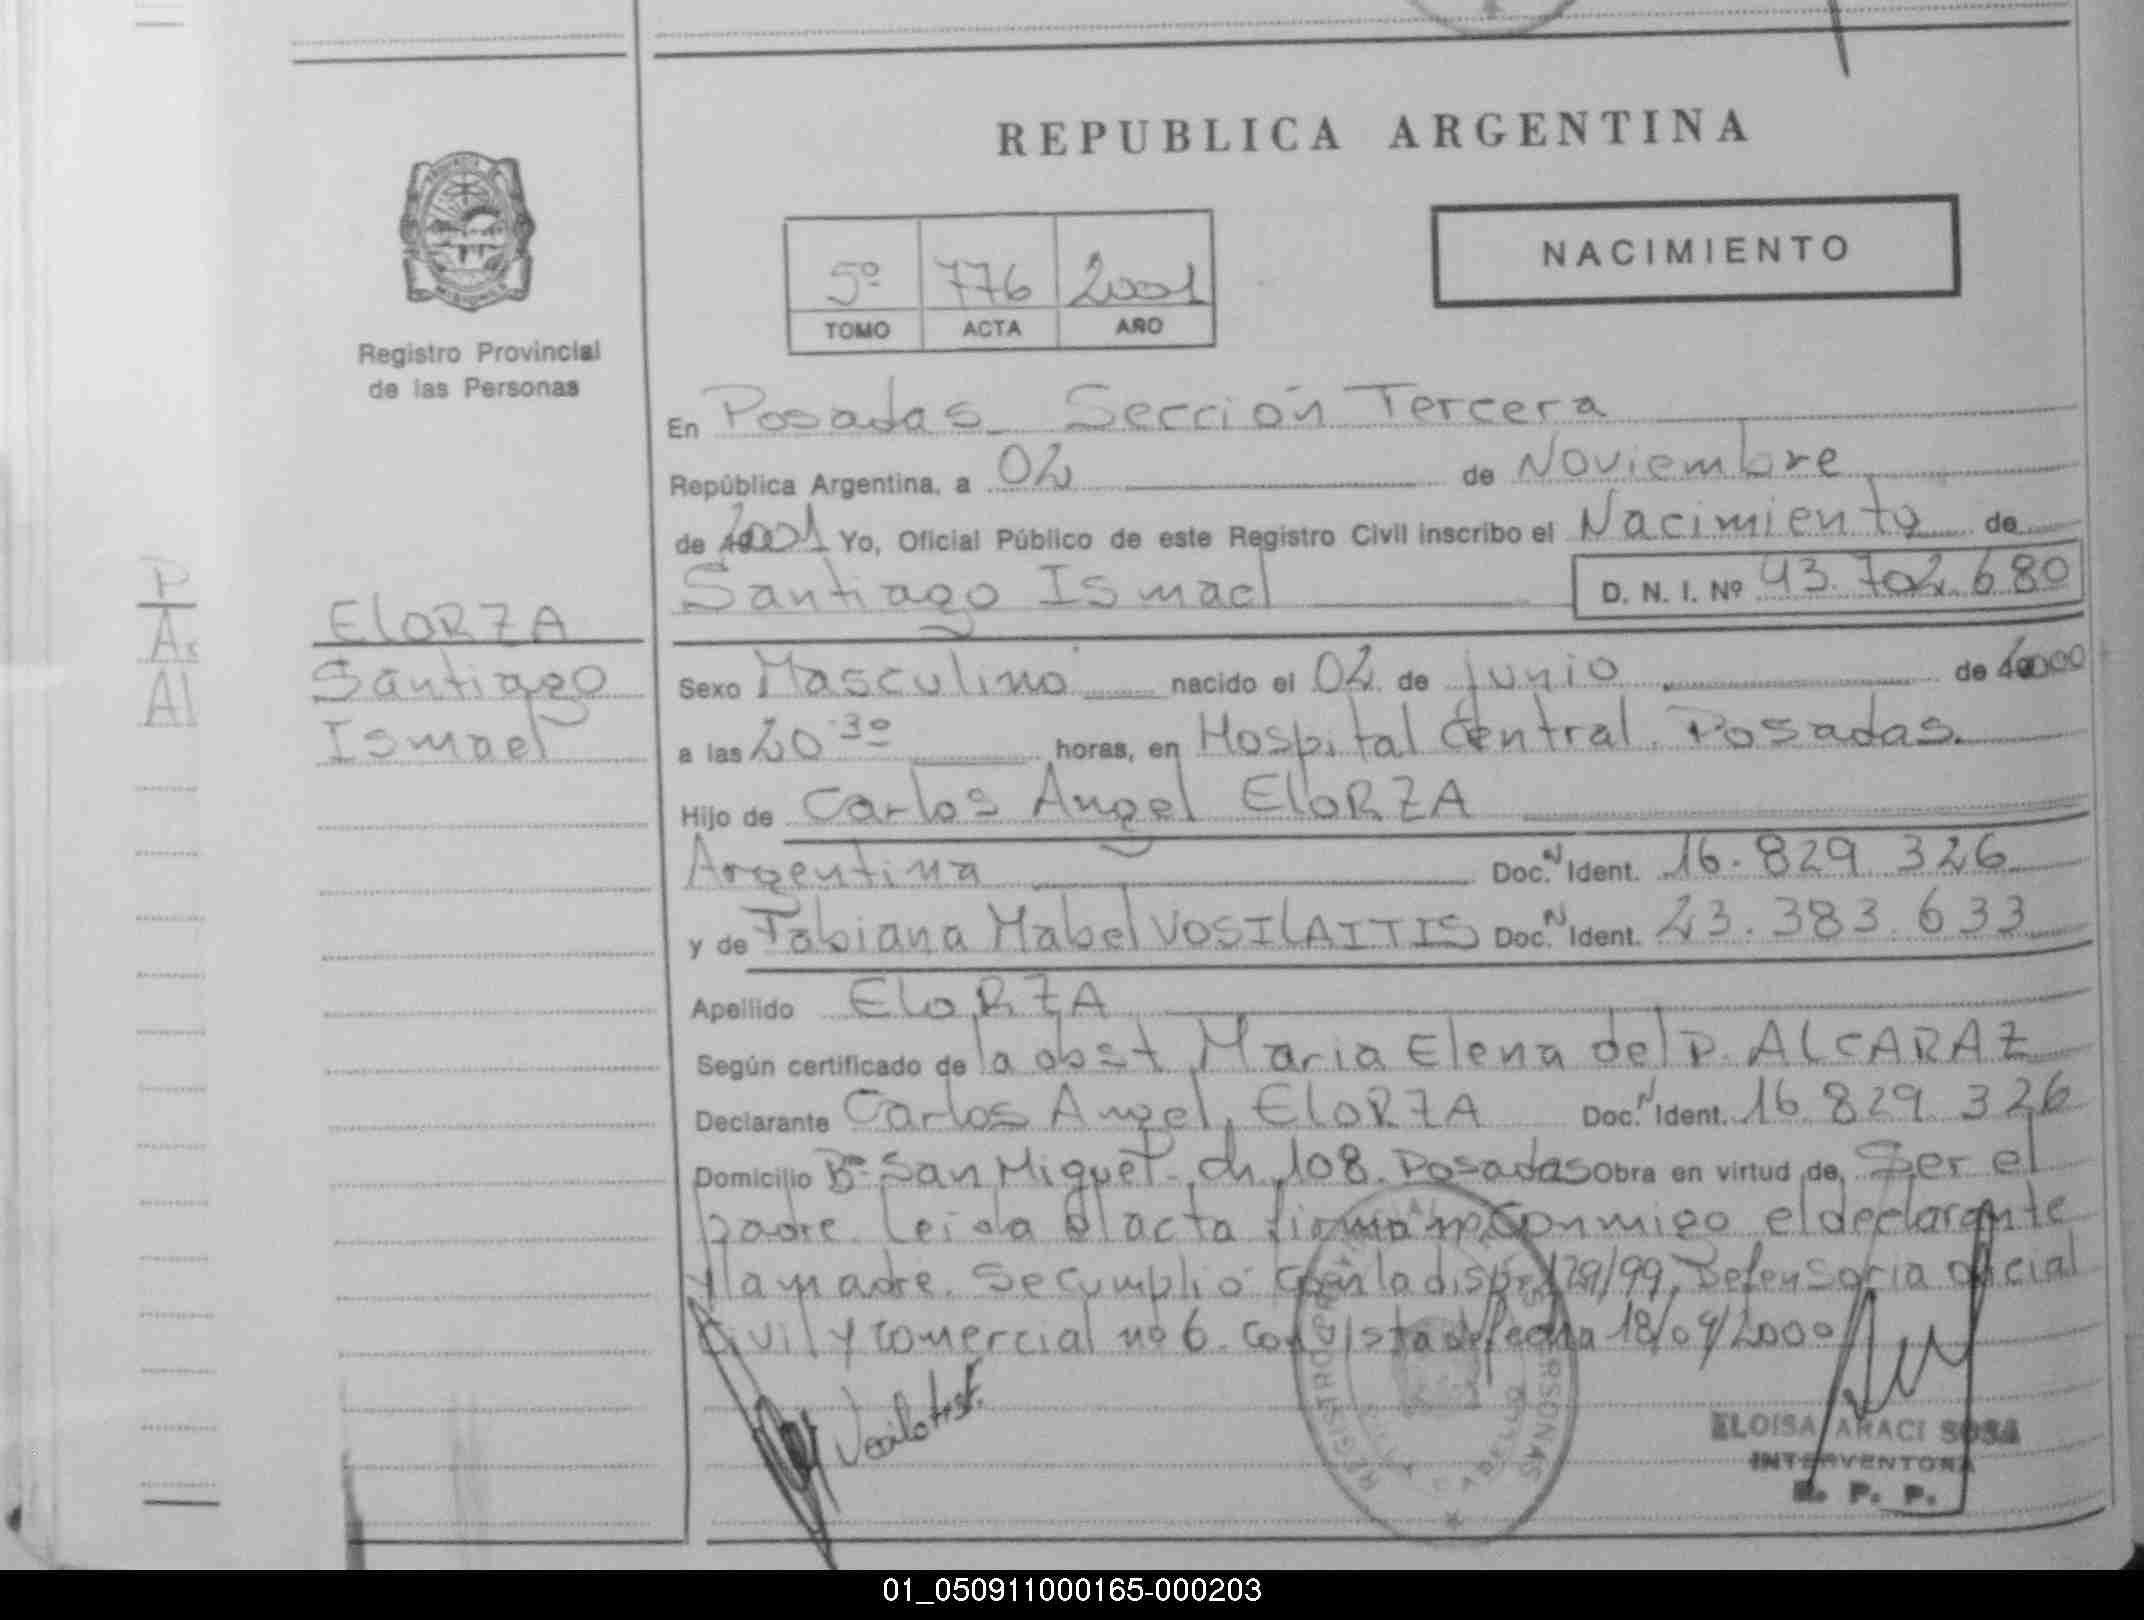 REPUBLICA ARGENTINA
NACIMIENTO
5º 776 2001
TOMO ACTA AÑO
MISIONES
Registro Provincial
de las Personas
En Posadas_ Sección Tercera
República Argentina, a 02 de Noviembre
de 2001 Yo, Oficial Público de este Registro Civil inscribo el Nacimiento de
Santiago Ismael D. N. I. Nº 43.702.680
P
A
Al
ElORZA
Santiago
Ismael
Sexo Masculino nacido el 02 de Junio de 2000
a las 20 30 horas, en Hospital Central. Posadas.
Hijo de Carlos Angel ElORZA
Argentina Doc. N Ident. 16.829.326
y de Fabiana Mabel VOSILAITIS Doc. N Ident. 23.383.633
Apellido EloRZA
Según certificado de la obst Maria Elena del P. ALCARAZ
Declarante Carlos Angel, EloRZA Doc. N Ident. 16.829.326
Domicilio Bº San Miguel - ch 108. Posadas Obra en virtud de Ser el
padre. Leida el acta firman conmigo el declarante
y la madre. Se cumplio con la disp. 129/99, Defensoria oficial
Civil y Comercial nº 6. con vista de fecha 18/09/2000
REGISTRO PROVINCIAL PERSONAS
ELOISA ARACI SOSA
INTERVENTORA
R. P. P.
01_050911000165-000203